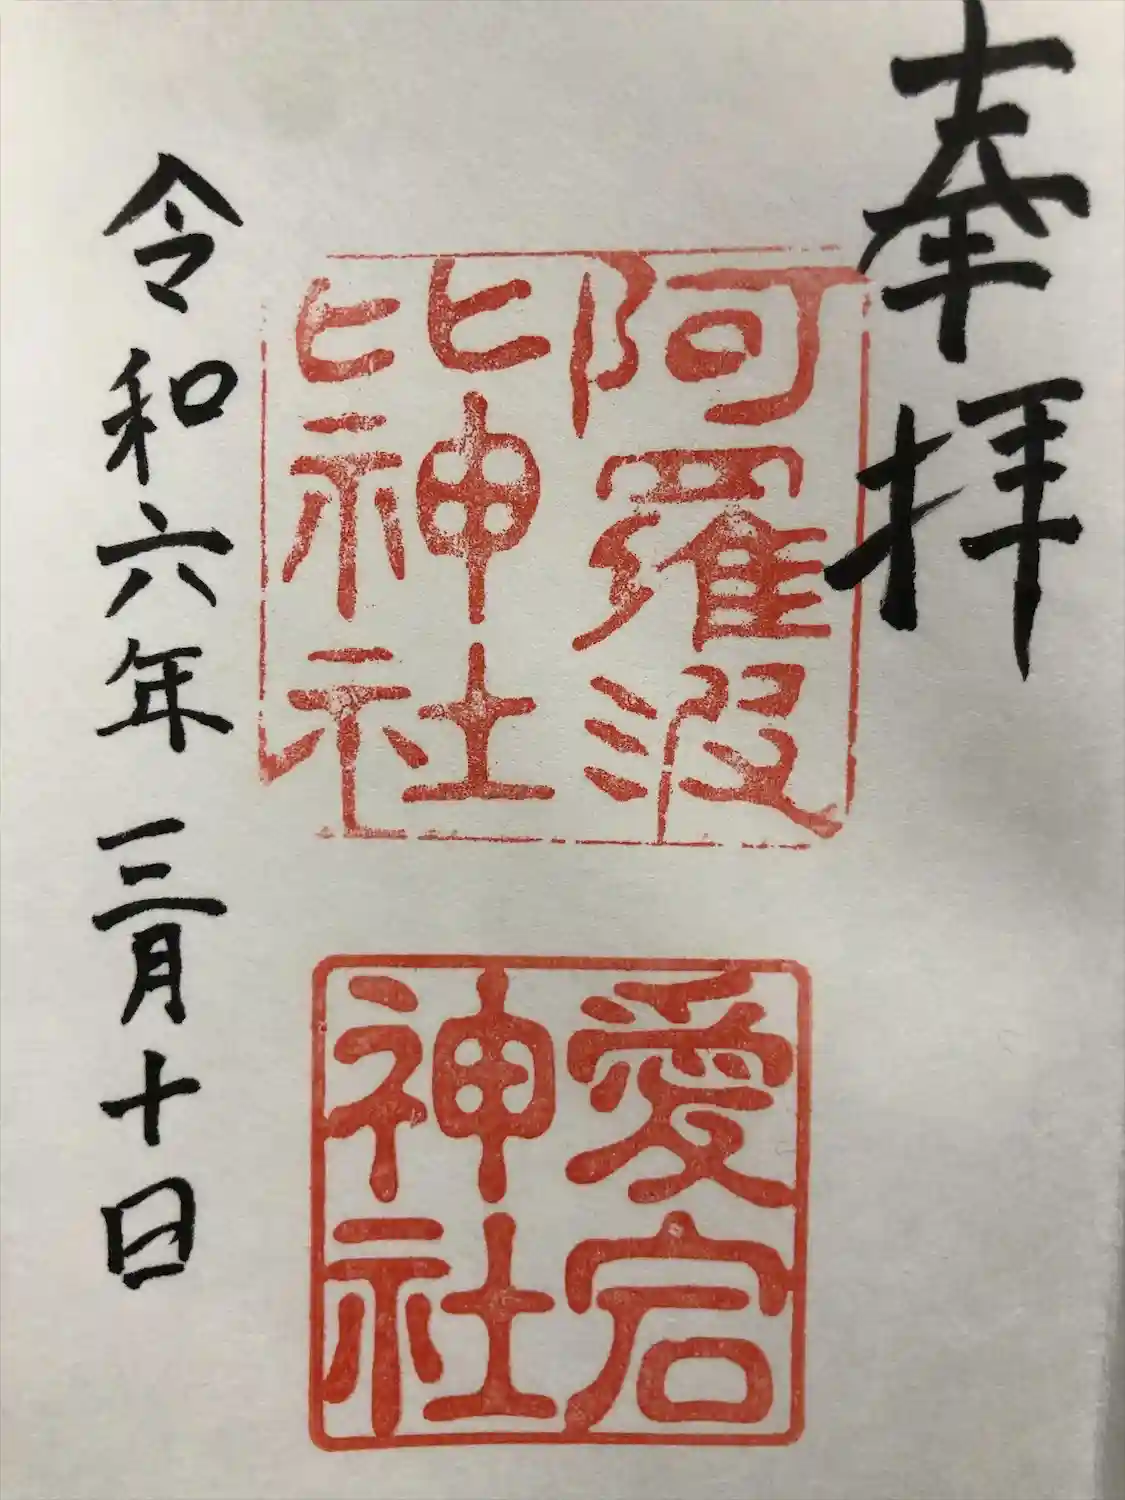 奉拝
阿羅波
比神社
愛宕
神社
令和六年三月十日